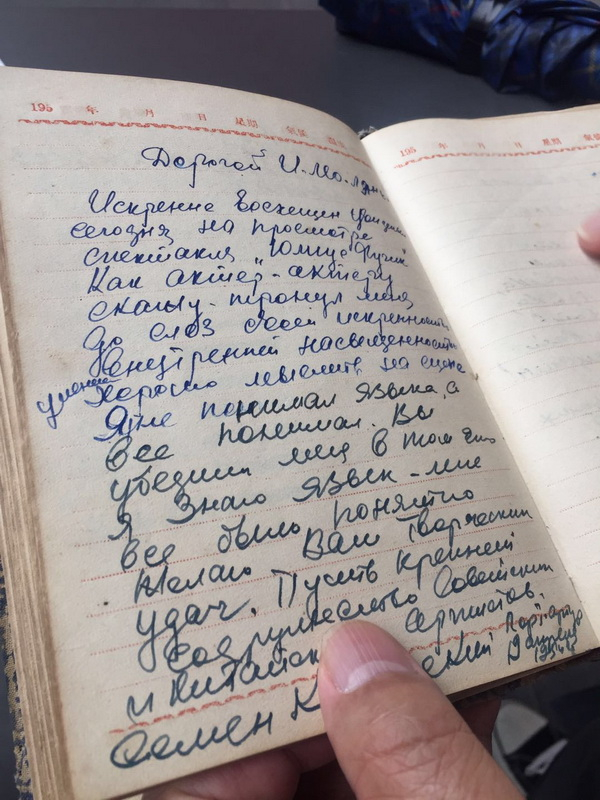 195 年 月 日 星期 氣候
195 年 月 日 星期 氣候
Дорогой И-Мо-Лянь
Искренне восхищен
сегодня на просмотре
спектакля „Юлиус Фучик"
Как актер-актеру
скажу-тронул меня
до слез своей искренностью
внутренней насыщенностью
умением
хорошо мыслить на сцене
Я не понимал языка, а
все понимал. Вы
убедили меня в том что
я знаю язык-мне
все было понятно
Желаю Вам творческих
удач. Пусть крепнет
содружество Советских
и Китайск артистов.
Семен К ский Порт-Арт
195